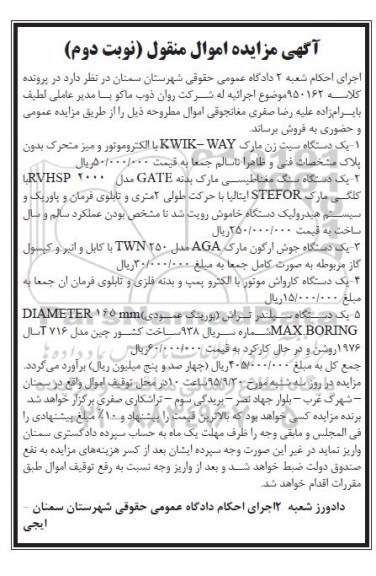 آگهی مزایده اموال منقول (نوبت دوم)
اجرای احکام شعبه ۲ دادگاه عمومی حقوقی شهرستان سمنان در نظر دارد در پرونده
کلاسه ۹۵۰۱۶۲موضوع اجرائیه له شرکت روان ذوب ماکو با مدیر عاملی لطیف
بایرامزاده علیه رضا صفری مغانجوقی اموال مطروحه ذیل را از طریق مزایده عمومی
و حضوری به فروش برساند.
۱-یک دستگاه سیت زن مارک KWIK– WAY با الکتروموتور و میز متحرک بدون
پلاک مشخصات فنی و ظاهرا ناسالم جمعا به قیمت ۵۰/۰۰۰/۰۰۰ریال
۲-یک دستگاه سنگ مغناطیسی مارک بدنه GATE مدل RVHSP ۲۰۰۰با
کلگی مارک STEFOR ایتالیا با حرکت طولی ۲متری و تابلوی فرمان و پاورپک و
سیستم هیدرولیک دستگاه خاموش رویت شد نا مشخص بودن عملکرد سالم و سال
ساخت به قیمت ۲۵۰/۰۰۰/۰۰۰ریال
۳-یک دستگاه جوش آرگون مارک AGA مدل TWN ۲۵۰ با کابل و انبر و کپسول
گاز مربوطه به صورت کامل جمعا به مبلغ ۳۰/۰۰۰/۰۰۰ریال
۴-یک دستگاه کارواش موتور با الکترو پمپ و بدنه فلزی و تابلوی فرمان آن جمعا به
مبلغ ۱۵/۰۰۰/۰۰۰ریال
۵-یک دستگاه سیلندر تراش (بورینگ عمودی)DIAMETER ۱۶۵ mm
MAX BORINGشماره سریال ۹۳۸ساخت کشور چین مدل T ۷۱۶سال
۱۹۷۶روشن و در حال کارکرد به قیمت ۶۰/۰۰۰/۰۰۰ریال
جمع کل به مبلغ ۴۰۵/۰۰۰/۰۰۰ریال (چهارصد و پنج میلیون ریال) برآورد می‌گردد.
مزایده در روز سه شنبه مورخ ۹۵/۹/۳۰ساعت ۱۰در محل توقیف اموال واقع در سمنان
– شهرک غرب – بلوار جهاد نصر – بریدگی سوم – تراشکاری صفری برگزار خواهد شد
برنده مزایده کسی خواهد بود که بالاترین قیمت را پیشنهاد و ۱۰٪ مبلغ پیشنهادی را
فی المجلس و مابقی وجه را ظرف مهلت یک ماه به حساب سپرده دادگستری سمنان
واریز نماید در غیر این صورت وجه سپرده ایشان بعد از کسر هزینه‌های مزایده به نفع
صندوق دولت ضبط خواهد شد و بعد از واریز وجه نسبت به رفع توقیف اموال طبق
مقررات اقدام خواهد شد.
دادورز شعبه ۲اجرای احکام دادگاه عمومی حقوقی شهرستان سمنان –
ایجی